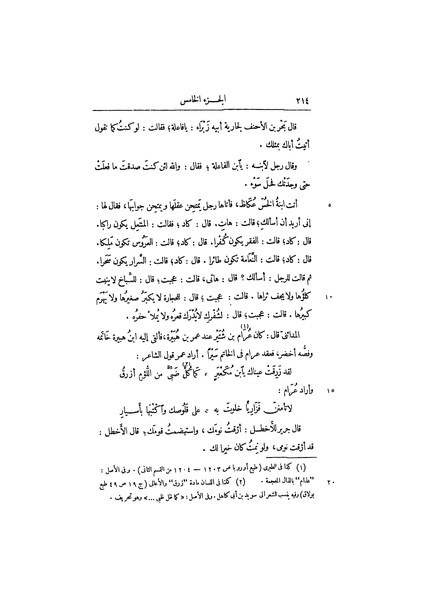 ٢١٤ الجزء الخامس
قال بحر بن الأحنف لجارية أبيه زَبْراء : يا فاعلة؛ فقالت : لو كنتُ كما تقول
أتيتُ أباك بمثلك .
وقال رجل لآبنه : يآبن الفاعلة؛ فقال : والله لئن كنت صدقت ما فعلَتْ
حتى وجدَتْك فحل سَوْء .
٥ أتت ابنةُ الخُسّ عُكاظَ، فأتاها رجل يمتحن عقلها ويمتحن جوابها، فقال لها :
إنى أريد أن أسألكِ؛ قالت : هاتِ. قال : كاد؛ فقالت : المنتعِل يكون راكبا.
قال : كاد؛ قالت : الفقر يكون كُفْرا. قال : كاد؛ قالت : العَروس تكون مَلِكا.
قال : كاد؛ قالت : النَّعامة تكون طائرا. قال : كاد؛ قالت : السِّرار يكون سَحَرا.
ثم قالت للرجل : أسألك؟ قال : هاتى، قالت : عجبت؛ قال : للسِّباخ لا ينبت
١٠ كلؤها ولا يجف ثراها. قالت : عجبت؛ قال : للحجارة لا يكبرُ صغيرها ولا يَهْرَم
كبيرُها. قالت : عجبت؛ قال : لشُفْرِك لا يُدْرَك قعرُه ولا يُملأ حفرُه.
المدائنىّ قال : كان عُرام بن شُتَيْر عند عمر بن هُبَيْرة، فألقى إليه ابنُ هبيرة خاتَمه
وفصُّه أخضر، فعقد عرام فى الخاتم سَيْرًا . أراد عمر قول الشاعر :
لقد زَرِقتْ عيناك يآبن مُكَعْبَرٍ ، كما كلُّ ضَبِّىٍّ من اللُّؤم أزرقُ
١٥ وأراد عُرام :
لا تأمننَّ فَزاريًّا خلوتَ به ٭ على قَلُوصك واكتُبْها بأَسيار
قال جرير للأخطل : أرّقتُ نومَك ، واستهضمتُ قومك؛ قال الأخطل :
قد أرّقت نومى، ولو نمتُ كان خيرا لك .
(١) كذا فى الطبرى (طبع أوروبا ص ١٢٠٣ — ١٢٠٤ من القسم الثانى) . وفى الأصل :
٢٠ بالذال المعجمة . (٢) كذا فى اللسان مادة "زرق" والأغانى (ج ١٩ ص ٤٩ طبع
بولاق) وفيه ينسب الشعر الى سويد بن أبى كاهل. وفى الأصل : «كما ظل ظبى ...» وهو تحريف .